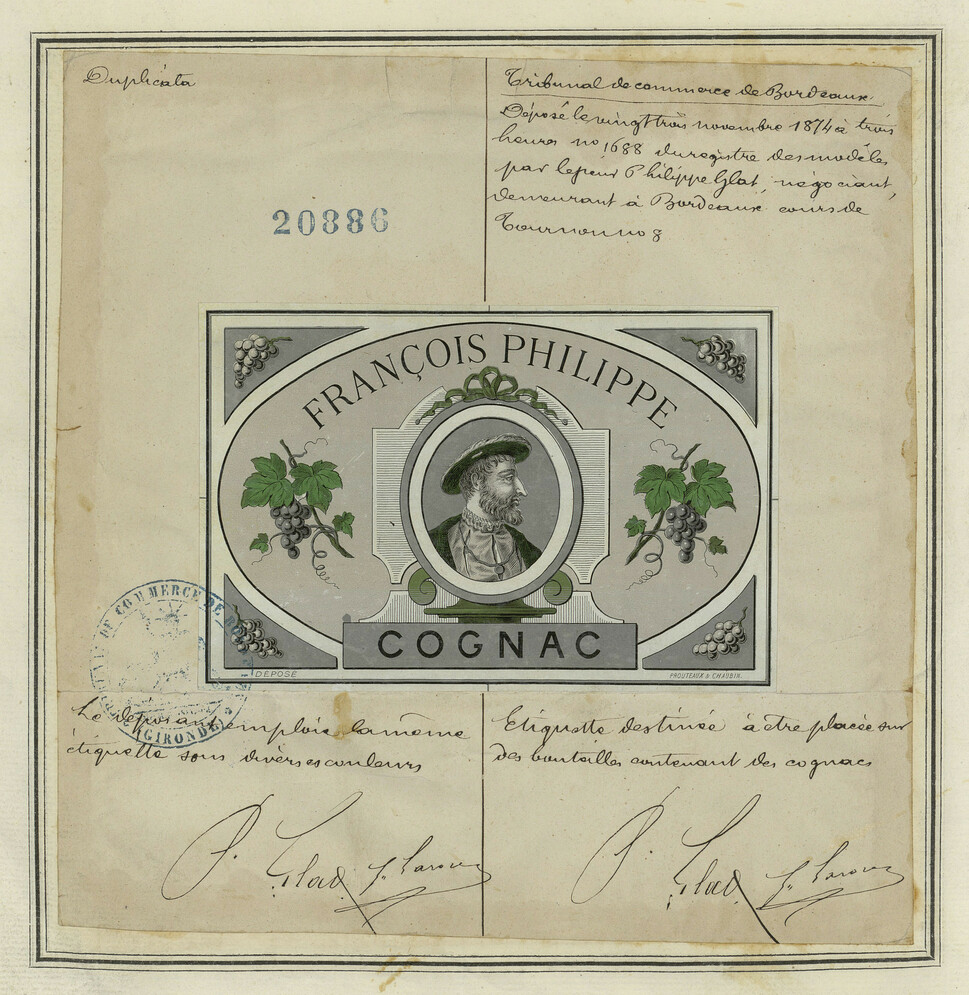 Duplicata
20886
Tribunal de commerce de Bordeaux.
Déposé le vingt trois novembre 1874 à trois
heures no 1688 du registre des modèles
par le sieur Philippe Glat, négociant,
demeurant à Bordeaux cours de
Tournon no 8
FRANÇOIS PHILIPPE
COGNAC
DÉPOSÉ
PROUTEAUX & CHAUBIN.
DE COMMERCE DE BO
GIRONDE
Le déposant emploie la même
étiquette sous diverses couleurs
Etiquette destinée à être placée sur
des bouteilles contenant des cognacs
P. Glat
P. Glat